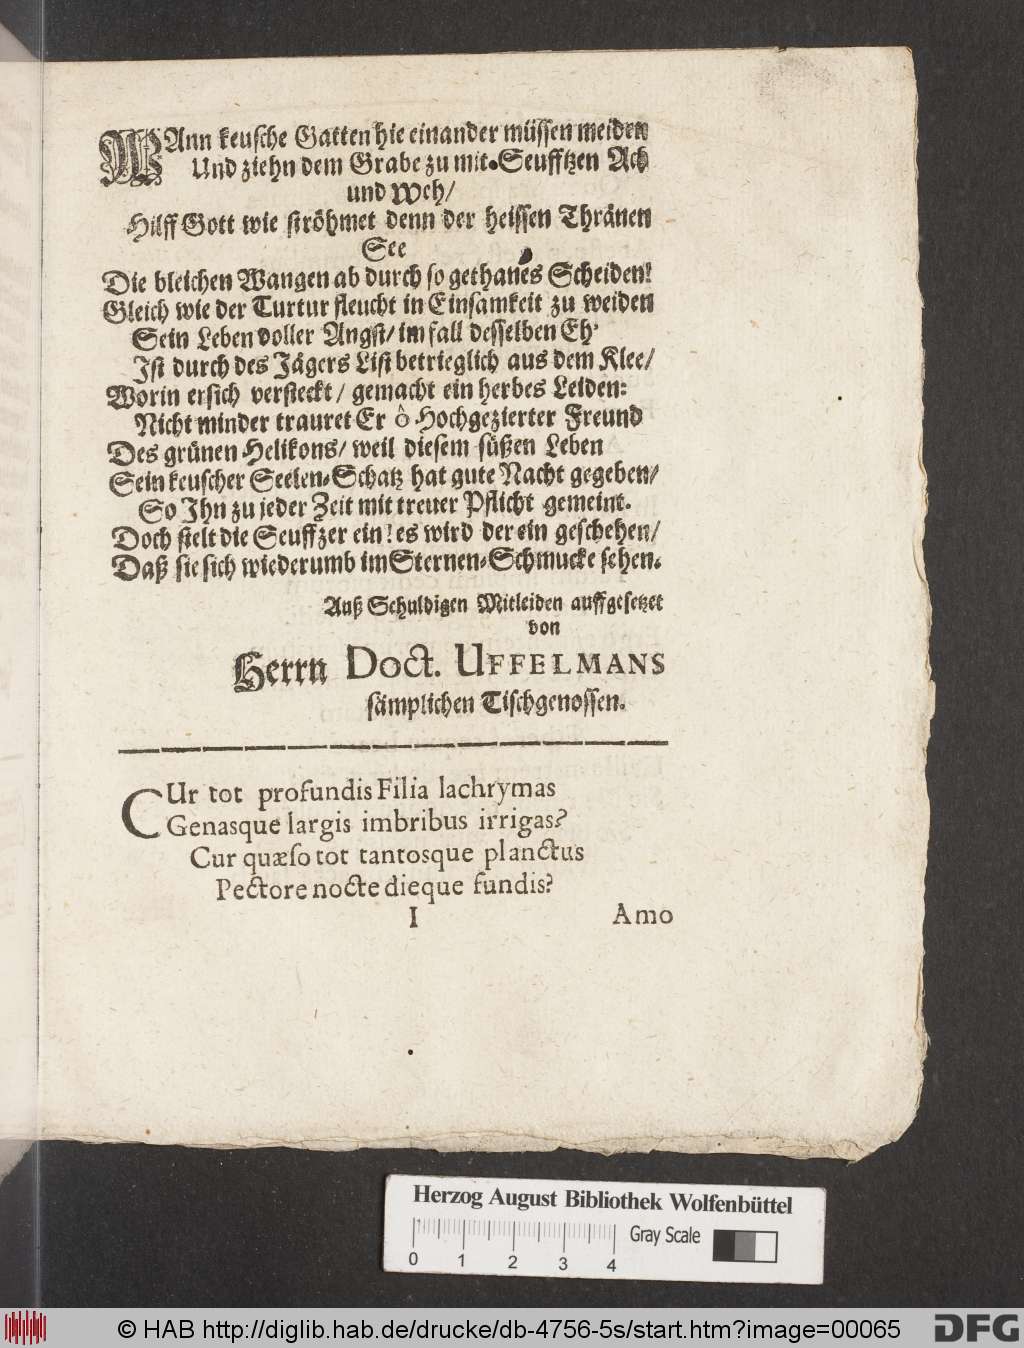 WAnn keusche Gatten hie einander müssen meiden
Und ziehn dem Grabe zu mit Seufftzen Ach
und Weh/
Hilff Gott wie ströhmet denn der heissen Thränen
See
Die bleichen Wangen ab durch so gethanes Scheiden!
Gleich wie der Turtur fleucht in Einsamkeit zu weiden
Sein Leben voller Angst/ im fall desselben Eh'
Ist durch des Jägers List betrieglich aus dem Klee/
Worin er sich versteckt/ gemacht ein herbes Leiden:
Nicht minder trauret Er ô Hochgezierter Freund
Des grünen Helikons/ weil diesem süßen Leben
Sein keuscher Seelen-Schatz hat gute Nacht gegeben/
So Ihn zu jeder Zeit mit treuer Pflicht gemeint.
Doch stelt die Seuffzer ein! es wird der ein geschehen/
Daß sie sich wiederumb im Sternen-Schmucke sehen.
Auß Schuldigen Mitleiden auffgesetzet
von
Herrn Doct. UFFELMANS
sämplichen Tischgenossen.
CUr tot profundis Filia lachrymas
Genasque largis imbribus irrigas?
Cur quæso tot tantosque planctus
Pectore nocte dieque fundis?
I Amo
Herzog August Bibliothek Wolfenbüttel
Gray Scale
0 1 2 3 4
© HAB http://diglib.hab.de/drucke/db-4756-5s/start.htm?image=00065
DFG